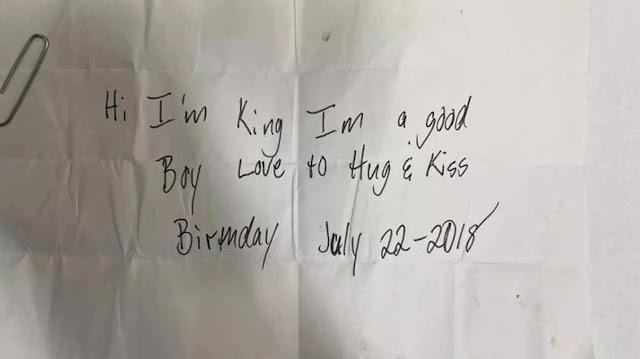 Hi I'm King Im a good
Boy Love to Hug & Kiss
Birthday July 22-2018